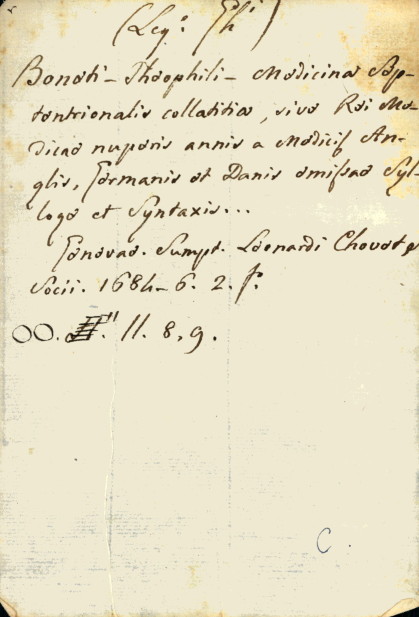 (Leg.º Ph')
Boneti - Theophili - Medicina Sep-
tentrionalis collatitia, sive Rei Me-
dicae nuperis annis a Medicis An-
glis, Germanis et Danis emissae Syl-
loge et Syntaxis...
Genevae. Sumpt. Leonardi Chouet &
Socii. 1684-6. 2. f.
OO. 11. 8, 9.
C.